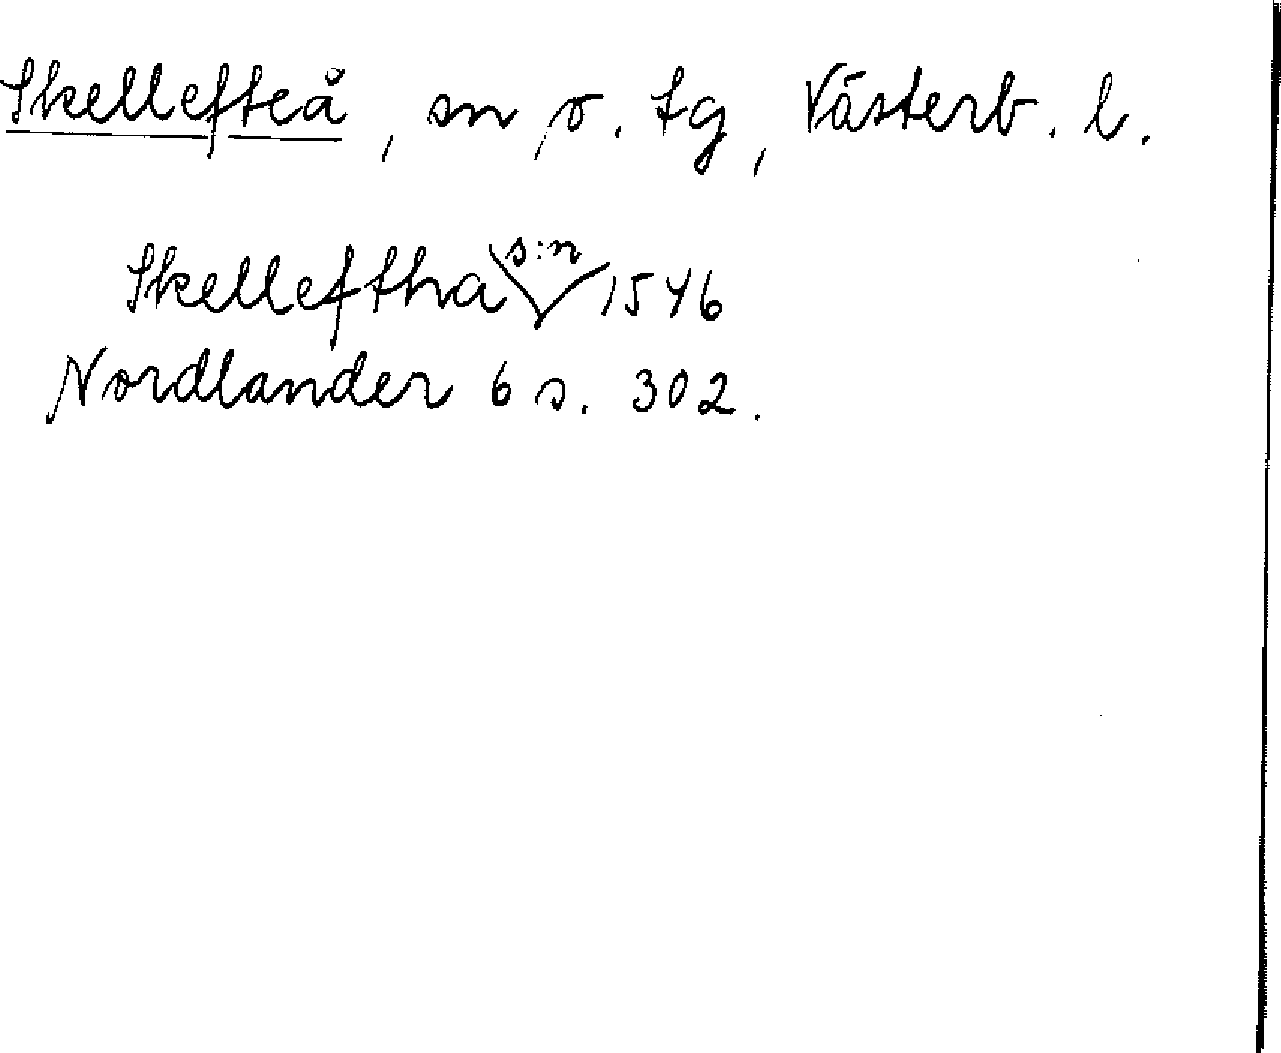 Skellefteå, sn o. tg, Västerb. l.
Skelleftha s:n 1546
Nordlander 6 s. 302.